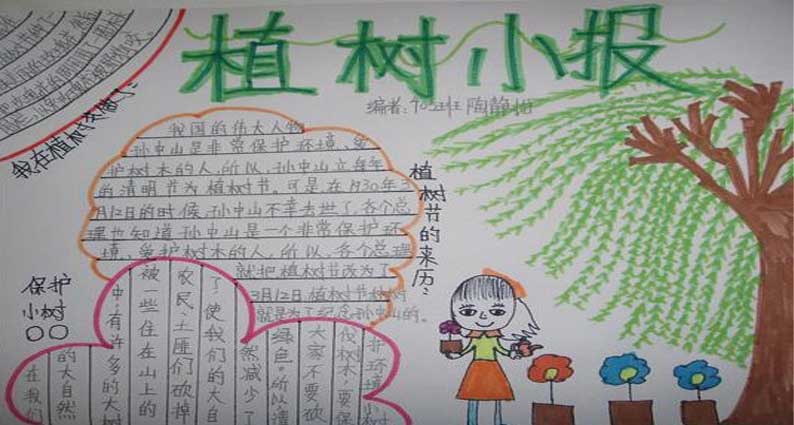 植树小报
编者:403班陶静怡
我在植树节懂了:
植树节的来历:
我国的伟大人物
孙中山是非常保护环境、爱
护树木的人,所以,孙中山立每年
的清明节为植树节。可是在1930年3
月12日的时候,孙中山不幸去世了,各个总
理也知道孙中山是一个非常保护环
境、爱护树木的人,所以,各个总理
就把植树节改为了
3月12日,植树节种树
就是为了纪念孙中山的。
保护
小树
〇〇
在我们
的大自然
中,有许多的大树
被一些住在山上的
农民、土匪们砍掉
了,使我们的大自
然减少了
绿色。所以请
大家不要砍
伐树木,要保
护环境